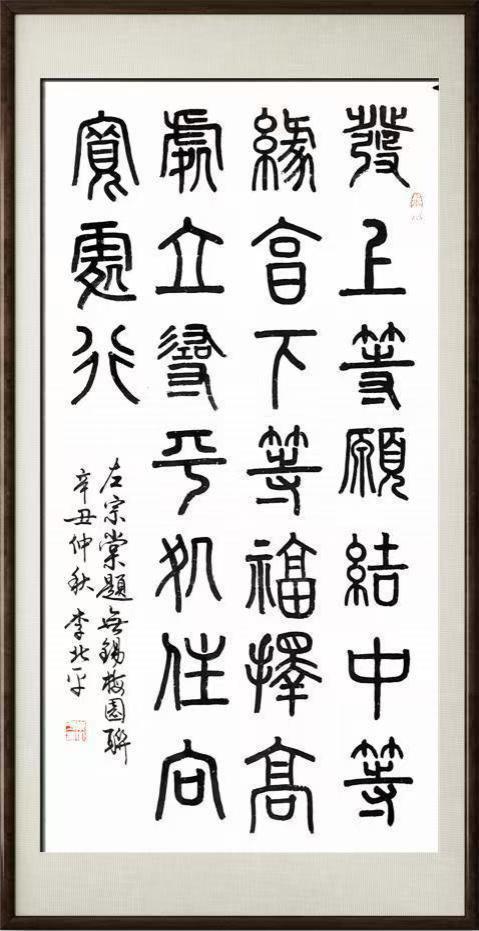 發上等願結中等
緣享下等福擇高
處立尋平処住向
寬處行
左宗棠題無錫梅園聯
辛丑仲秋 李北平